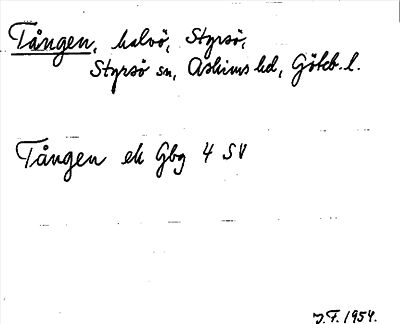 Tången, halvö, Styrsö,
Styrsö sn, Askims hd, Göteb. l.
Tången ek Gbg 4 SV
J.F. 1954.